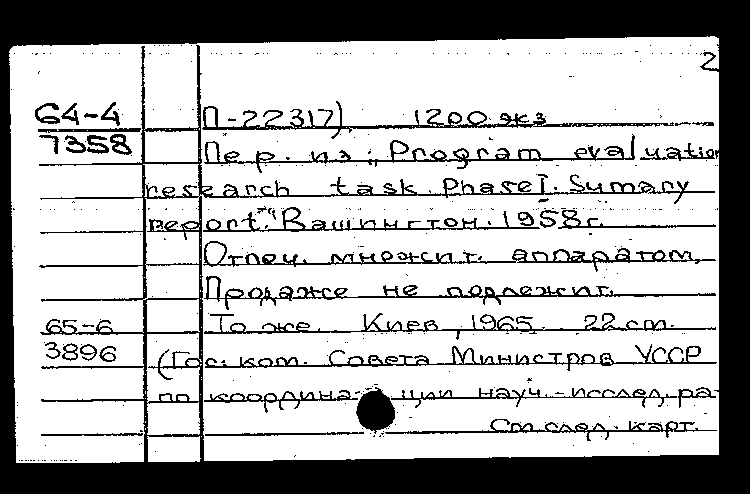 2
64-4 П-22317) 1200 экз
7358 Пер. из: „Program evaluation
research task. Phase I. Sumary
report." Вашингтон. 1958г.
Отпеч. множит. аппаратом.
Продаже не подлежит.
65-6 То же. Киев, 1965. 22 см.
3896 (Гос. ком. Совета Министров УССР
по координации науч.-исслед. ра-
См. след. карт.